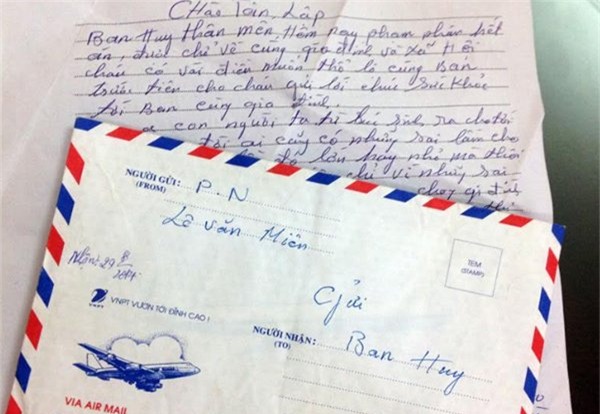 Chào Tân Lập
Ban Huy thân mến. Hôm nay phạm nhân hết
án, được chở về cùng gia đình và xã hội
cháu có vài điều muốn thổ lộ cùng Ban
trước tiên cho cháu gửi lời chúc sức khỏe
tới Ban cùng gia đình.
con người ta từ lúc sinh ra cho tới
ai cũng có những sai lầm cho
lớn hay nhỏ mà thôi
chỉ vì những sai
NGƯỜI GỬI: P.N
(FROM)
Lê Văn Miên
Nhận: 29
TEM
(STAMP)
VNPT VƯƠN TỚI ĐỈNH CAO !
VNPT
Gửi
NGƯỜI NHẬN: Ban Huy
(TO)
VIA AIR MAIL